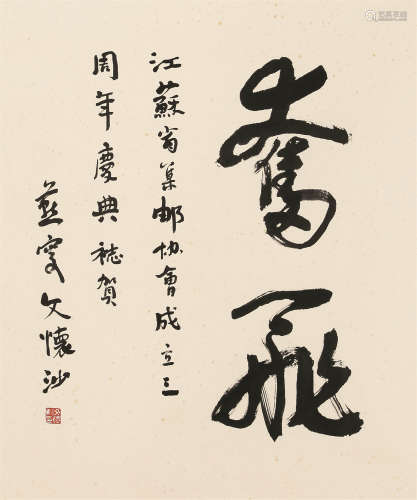 奮飛
江蘇省集邮协會成立三
周年慶典誌賀
燕叟文懷沙